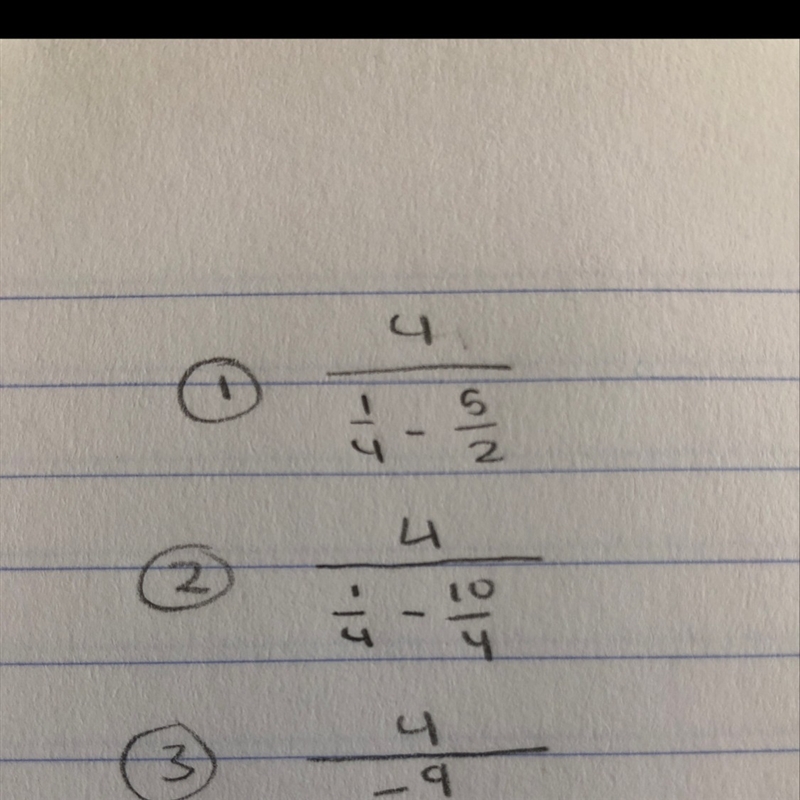 ① 4
1/4 - 5/2
② 4
1/4 - 10/4
③ 4
-9